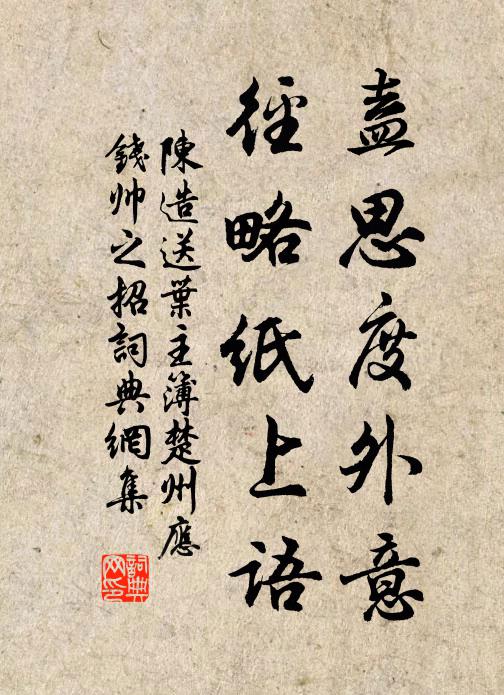 盍思度外意
徑略紙上語
陳造送葉主簿楚州應
錢帅之招詞典網集
詞典
网印